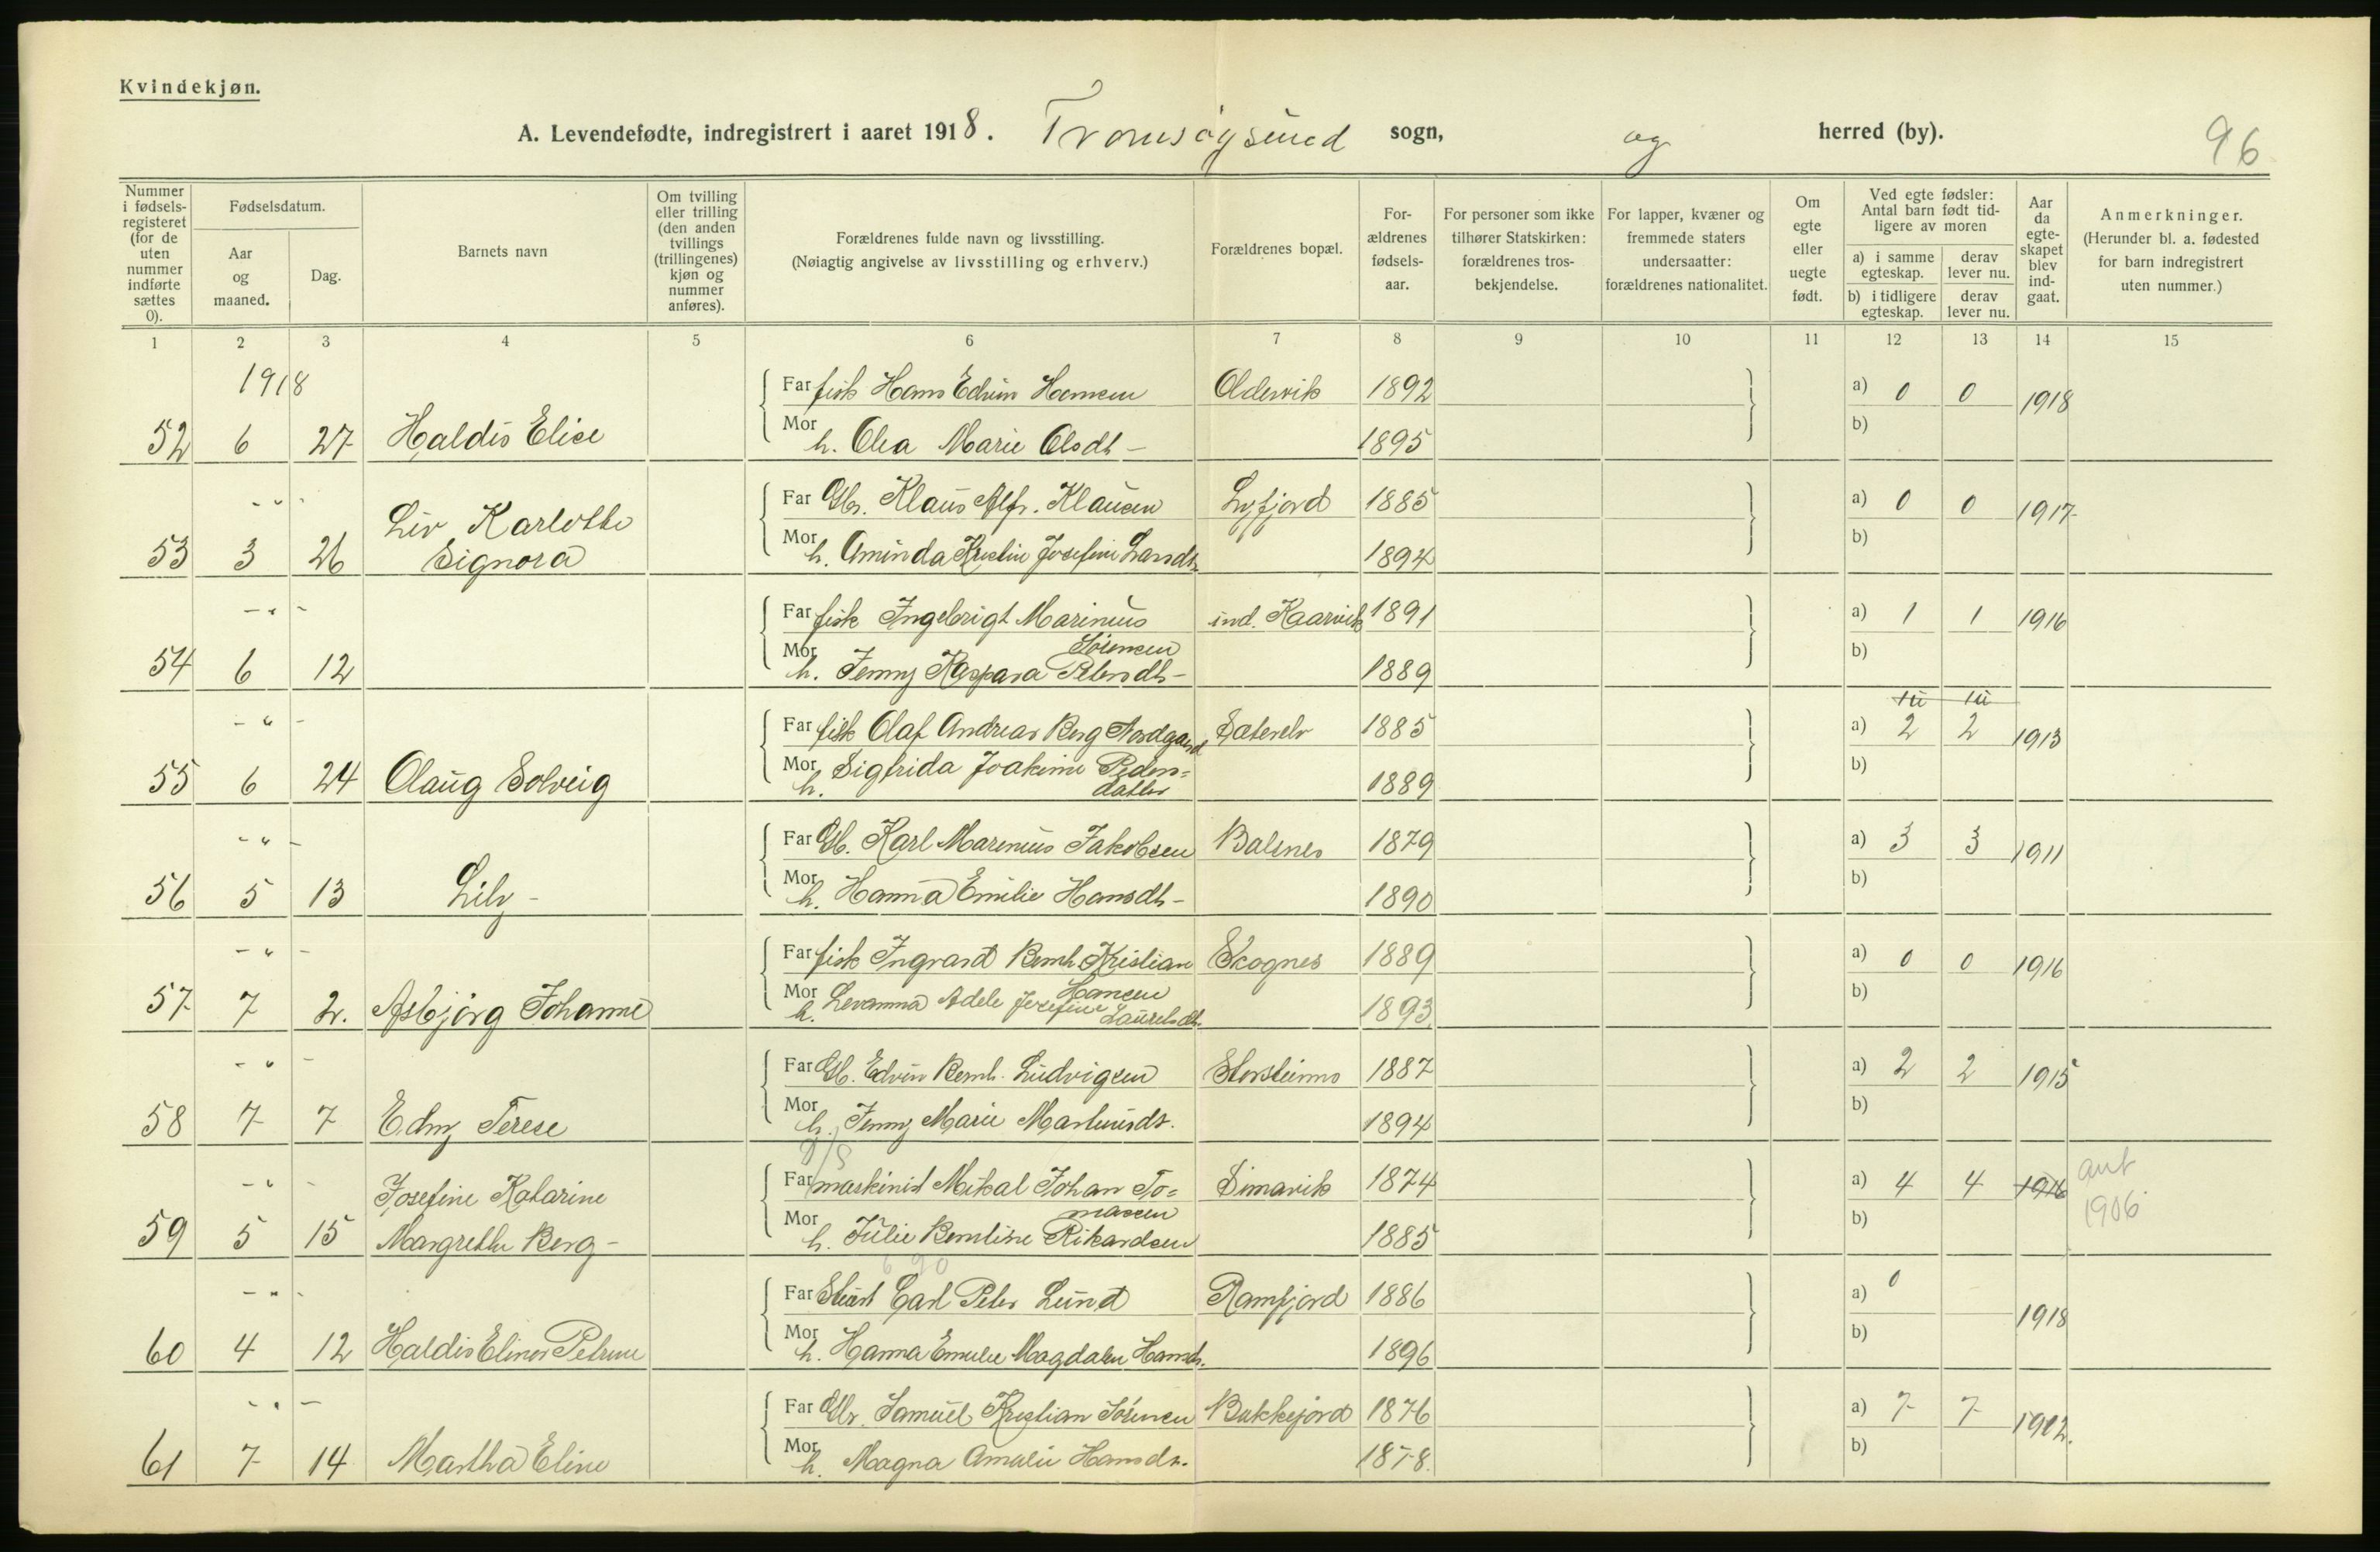 Kvindekjøn.
A. Levendefødte, indregistrert i aaret 1918. Tromsøysund sogn, og herred (by). 96
Nummer i fødselsregisteret (for de uten nummer indførte sættes 0).
Fødselsdatum.
Aar og maaned.
Dag.
Barnets navn
Om tvilling eller trilling (den anden tvillings (trillingenes) kjøn og nummer anføres).
Forældrenes fulde navn og livsstilling.
(Nøiagtig angivelse av livsstilling og erhverv.)
Forældrenes bopæl.
Forældrenes fødselsaar.
For personer som ikke tilhører Statskirken: forældrenes trosbekjendelse.
For lapper, kvæner og fremmede staters undersaatter: forældrenes nationalitet.
Om egte eller uegte født.
Ved egte fødsler: Antal barn født tidligere av moren
a) i samme egteskap.
derav lever nu.
b) i tidligere egteskap.
derav lever nu.
Aar da egteskapet blev indgaat.
Anmerkninger.
(Herunder bl. a. fødested for barn indregistrert uten nummer.)
1 2 3 4 5 6 7 8 9 10 11 12 13 14 15
1918
Far fisk Hans Edvin Hansen Oldervik 1892 a) 0 0 1918
52 6 27 Haldis Elise Mor h. Olea Marie Olsdt- 1895 b)
- " -
Far Gbr. Klaus Alfr. Klausen Lyfjord 1885 a) 0 0 1917
53 3 26 Liv Karlotte Signora Mor h. Aminda Kristine Josefine Larsdt. 1894 b)
- " -
Far fisk Ingebrigt Marinius Sörensen ind. Kaarvik 1891 a) 1 1 1916
54 6 12 Mor h. Jenny Kaspara Petersdt- 1889 b)
- " -
Far fisk Olaf Andreas Berg Nordgaard Sæterelv 1885 a) 2 2 1913
55 6 24 Olaug Solveig Mor h. Sigfrida Joakime Peders=datter 1889 b)
- " -
Far Gb. Karl Marenius Jakobsen Balsnes 1879 a) 3 3 1911
56 5 13 Lily - Mor h. Hanna Emilie Hansdt- 1890 b)
- " -
Far fisk Ingvard Bernh. Kristian Hansen Skognes 1889 a) 0 0 1916
57 7 2. Asbjörg Johanne Mor h. Levanna Adele Josefine Laurelsdt. 1893 b)
- " -
Far Gb. Edvin Bernh. Ludvigsen Storsteinnes 1887 a) 2 2 1915
58 7 7 Edny Terese Mor h. Jenny Marie Martinusdt. 1894 b)
D/S
- " -
Far maskinist Mikal Johan To=masen Simavik 1874 a) 4 4 1916 ant 1906
59 5 15 Josefine Katarine Margrethe Berg- Mor h. Julie Berntine Rikardsen 1885 b)
690
- " -
Far Stuert Carl Peter Lund Ramfjord 1886 a) 0 1918
60 4 12 Haldis Elinor Petrine Mor h. Hanna Emelie Magdalen Hansdt. 1896 b)
- " -
Far Gbr. Samuel Kristian Sörensen Bakkejord 1876 a) 7 7 1902.
61 7 14 Martha Eline Mor h. Magna Amalie Hansdt. 1878. b)